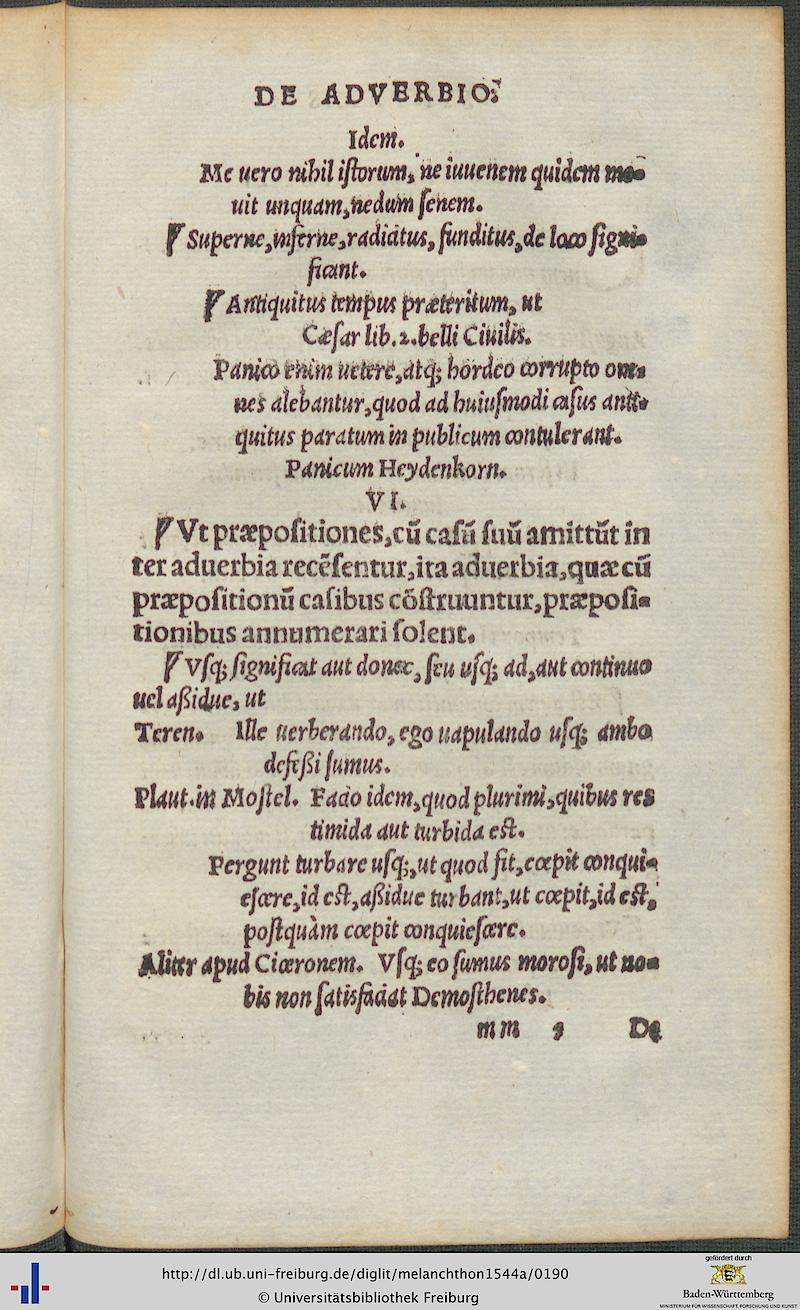 DE ADVERBIO.
Idem.
Me uero nihil iſtorum, ne iuuenem quidem mo-
uit unquam, nedum ſenem.
¶ Superne, inferne, radicitus, funditus, de loco ſigni-
ficant.
¶ Antiquitus tempus præteritum, ut
Cæſar lib. 2. belli Ciuilis.
Panico enim uetere, atq; hordeo corrupto om-
nes alebantur, quod ad huiuſmodi caſus anti-
quitus paratum in publicum contulerant.
Panicum Heydenkorn.
VI.
¶ Vt præpoſitiones, cū caſū ſuū amittūt in
ter aduerbia recēſentur, ita aduerbia, quæ cū
præpoſitionū caſibus cōſtruuntur, præpoſi-
tionibus annumerari ſolent.
¶ Vſq; ſignificat aut donec, ſeu uſq; ad, aut continuo
uel aßidue, ut
Teren. Ille uerberando, ego uapulando uſq; ambo
defeßi ſumus.
Plaut. in Moſtel. Facio idem, quod plurimi, quibus res
timida aut turbida eſt.
Pergunt turbare uſq;, ut quod ſit, cœpit conqui-
eſcere, id eſt, aßidue turbant, ut cœpit, id eſt,
poſtquàm cœpit conquieſcere.
Aliter apud Ciceronem. Vſq; eo ſumus moroſi, ut no-
bis non ſatisfaciat Demoſthenes.
mm 3 De
gefördert durch
http://dl.ub.uni-freiburg.de/diglit/melanchthon1544a/0190
© Universitätsbibliothek Freiburg
Baden-Württemberg
MINISTERIUM FÜR WISSENSCHAFT, FORSCHUNG UND KUNST